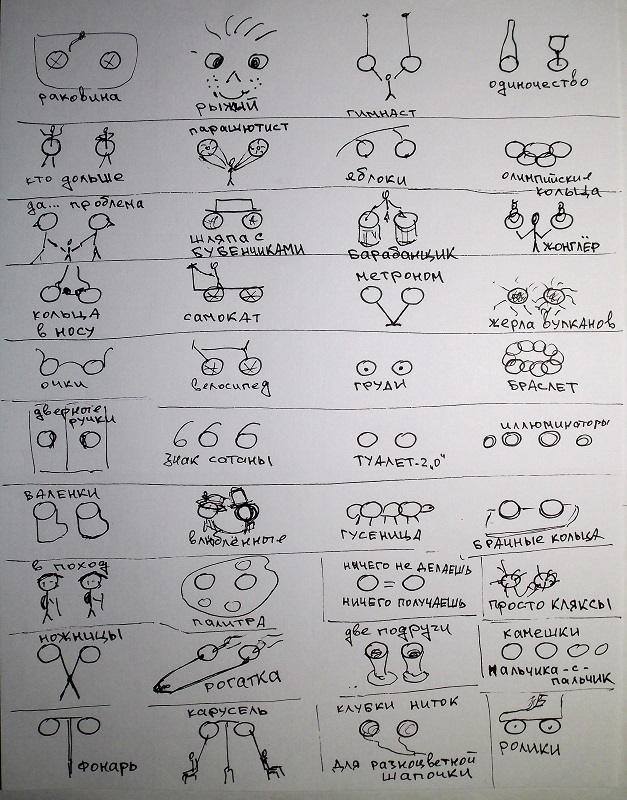 раковина
рыжий
гимнаст
одиночество
кто дольше
парашютист
яблоки
олимпийские
кольца
да... проблема
шляпа с
бубенчиками
барабанщик
жонглёр
кольца
в носу
самокат
метроном
жерла вулканов
очки
велосипед
груди
браслет
дверные
ручки
666
знак сотаны
туалет-2„0"
иллюминаторы
валенки
влюблённые
гусеница
брачные кольца
в поход
палитра
ничего не делаешь
=
ничего получаешь
просто кляксы
ножницы
рогатка
две подруги
камешки
мальчика-с-
пальчик
фонарь
карусель
клубки ниток
для разноцветной
шапочки
ролики